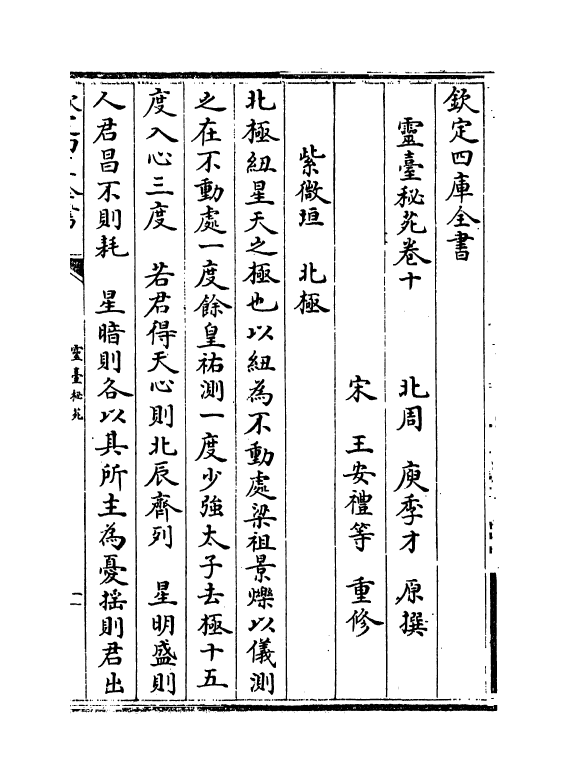 欽定四庫全書
靈臺秘苑卷十
北周 庾季才 原撰
宋 王安禮等 重修
紫微垣 北極
北極紐星天之極也以紐為不動處梁祖景爍以儀測
之在不動處一度餘皇祐測一度少強太子去極十五
度入心三度 若君得天心則北辰齊列 星明盛則
人君昌不則耗 星暗則各以其所主為憂揺則君出
靈臺秘苑